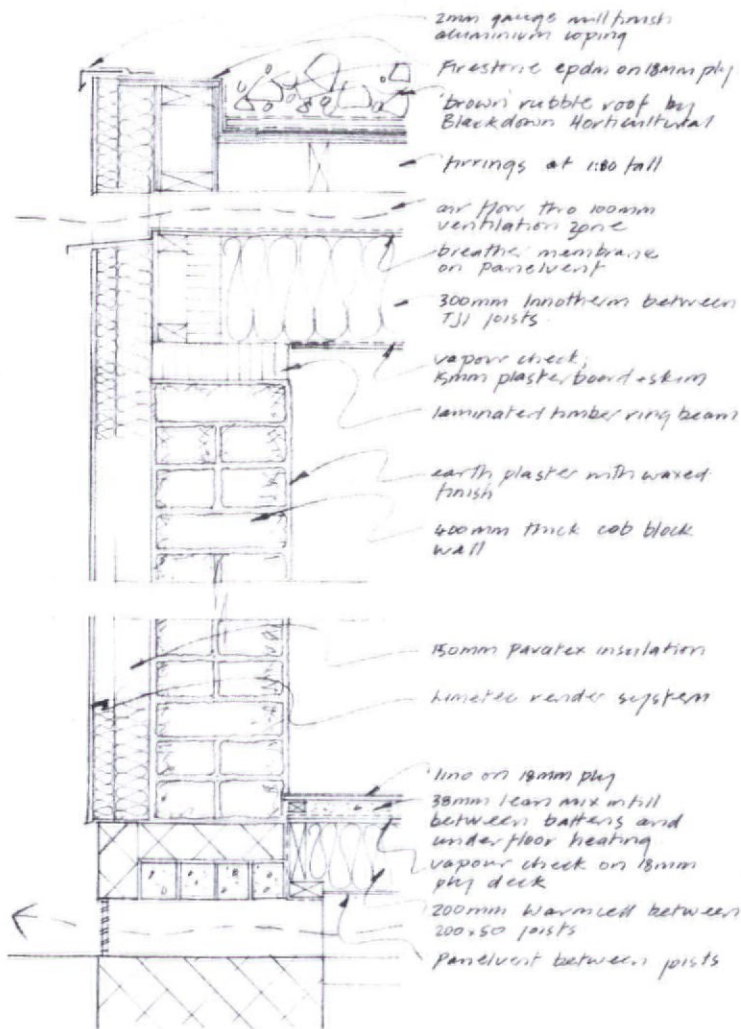 2mm gauge mill finish
aluminium coping
Firestone epdm on 18mm ply
'brown' rubble roof by
Blackdown Horticultural
firrings at 1:80 fall
air flow thro 100mm
ventilation zone
breather membrane
on Panelvent
300mm Innotherm between
TJI joists
vapour check,
15mm plasterboard + skim
laminated timber ring beam
earth plaster with waxed
finish
400mm thick cob block
wall
150mm Pavatex insulation
Limetec render system
lino on 18mm ply
38mm lean mix infill
between battens and
underfloor heating
vapour check on 18mm
ply deck
200mm Warmcell between
200x50 joists
Panelvent between joists